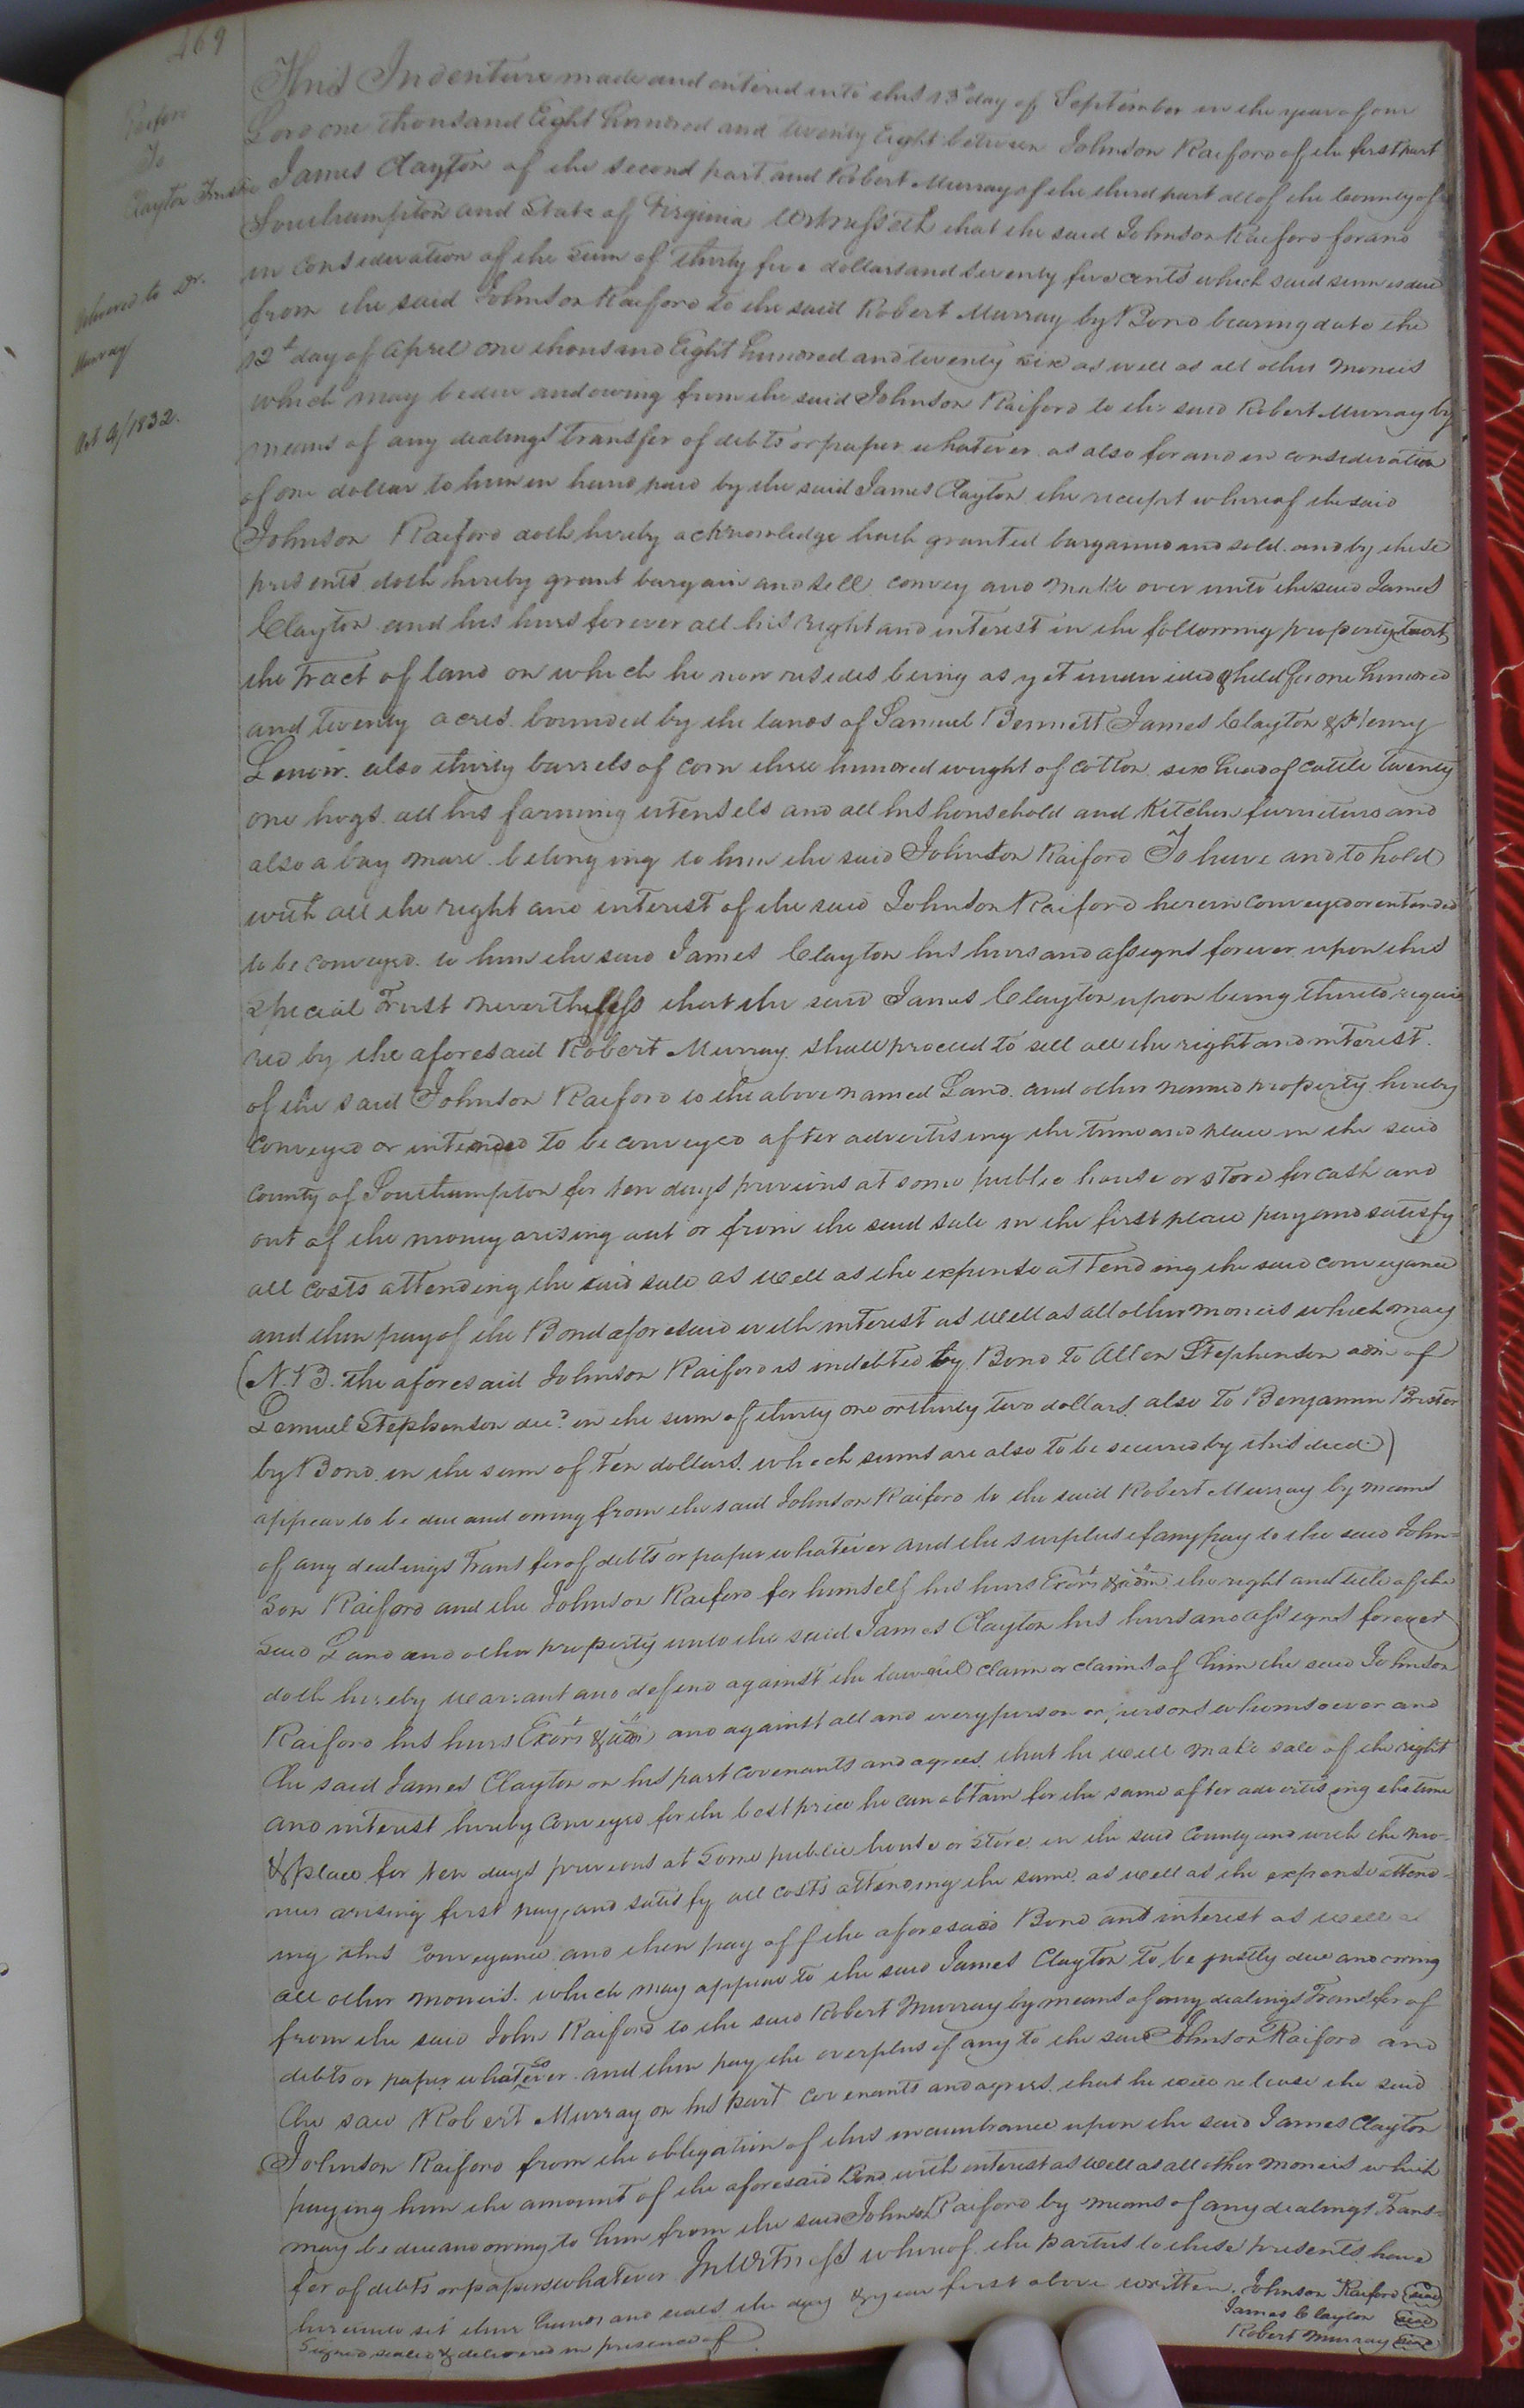 469
Raiford
To
Clayton Trustee
Delivered to Dr.
Murray
Oct 4/1832.
This Indenture made and entered into this 13th day of September in the year of our
Lord one thousand Eight hundred and twenty Eight between Johnson Raiford of the first part
James Clayton of the second part and Robert Murray of the third part all of the County of
Southampton and State of Virginia Witnesseth that the said Johnson Raiford for and
in consideration of the sum of thirty five dollars and seventy five cents which said sum is due
from the said Johnson Raiford to the said Robert Murray by Bond bearing date the
12th day of April one thousand Eight hundred and twenty six as well as all other moneis
which may be due and owing from the said Johnson Raiford to the said Robert Murray by
means of any dealings transfer of debts or paper whatever as also for and in consideration
of one dollar to him in hand paid by the said James Clayton the receipt whereof the said
Johnson Raiford doth hereby acknowledge hath granted bargained and sold and by these
presents doth hereby grant bargain and sell convey and make over unto the said James
Clayton and his heirs forever all his right and interest in the following property (towit)
the tract of land on which he now resides being as yet undivided & held for one hundred
and twenty acres bounded by the lands of Samuel Bennett James Clayton & Henry
Lenoir. also thirty barrels of corn three hundred weight of cotton six head of cattle twenty
one hogs all his farming utensels and all his household and kitchen furniture and
also a bay mare belonging to him the said Johnson Raiford To have and to hold
with all the right and interest of the said Johnson Raiford herein conveyed or entended
to be conveyed to him the said James Clayton his heirs and assigns forever upon this
special Trust nevertheless that the said James Clayton upon being thereto requi
red by the aforesaid Robert Murray shall proceed to sell all the right and interest
of the said Johnson Raiford to the above named Land and other named property hereby
conveyed or intended to be conveyed after advertising the time and place in the said
county of Southampton for ten days previous at some public house or store for cash and
out of the money arising out or from the said sale in the first place pay and satisfy
all costs attending the said sale as well as the expense attending the said conveyance
and then pay of the Bond aforesaid with interest as well as all other moneis which may
(N.B. the aforesaid Johnson Raiford is indebted by Bond to Allen Stephenson adm of
Lemuel Stephenson decd in the sum of thirty one or thirty two dollars also to Benjamin Brister
by Bond in the sum of Ten dollars. which sums are also to be secured by this deed.)
appear to be due and owing from the said Johnson Raiford to the said Robert Murray by means
of any dealings Transfer of debts or paper whatever and the surplus if any pay to the said John=
son Raiford and the Johnson Raiford for himself his heirs Exors & adm the right and title of the
said Land and other property unto the said James Clayton his heirs and assigns forever
doth hereby warrant and defend against the lawful claim or claims of him the said Johnson
Raiford his heirs Exors & adm and against all and every person or persons whomsoever and
the said James Clayton on his part covenants and agrees that he will make sale of the right
and interest hereby conveyed for the best price he can obtain for the same after advertising the time
& place for ten days previous at some public house or store in the said County and with the mo-
nies arising first pay and satisfy all costs attending the same as well as the expense attend-
ing this conveyance and then pay off the aforesaid Bond and interest as well as
all other moneis which may appear to the said James Clayton to be justly due and owing
from the said John Raiford to the said Robert Murray by means of any dealings Transfer of
debts or paper whatsoever and then pay the overplus if any to the said Johnson Raiford and
the said Robert Murray on his part covenants and agrees that he will release the said
Johnson Raiford from the obligation of this incumbrance upon the said James Clayton
paying him the amount of the aforesaid Bond with interest as well as all other moneis which
may be due and owing to him from the said Johnson Raiford by means of any dealings Trans-
fer of debts or papers whatever In Witness whereof the parties to these presents have
hereunto set their hands and seals the day & year first above written. Johnson Raiford seal
James Clayton seal
Signed sealed & delivered in presence of Robert Murray seal